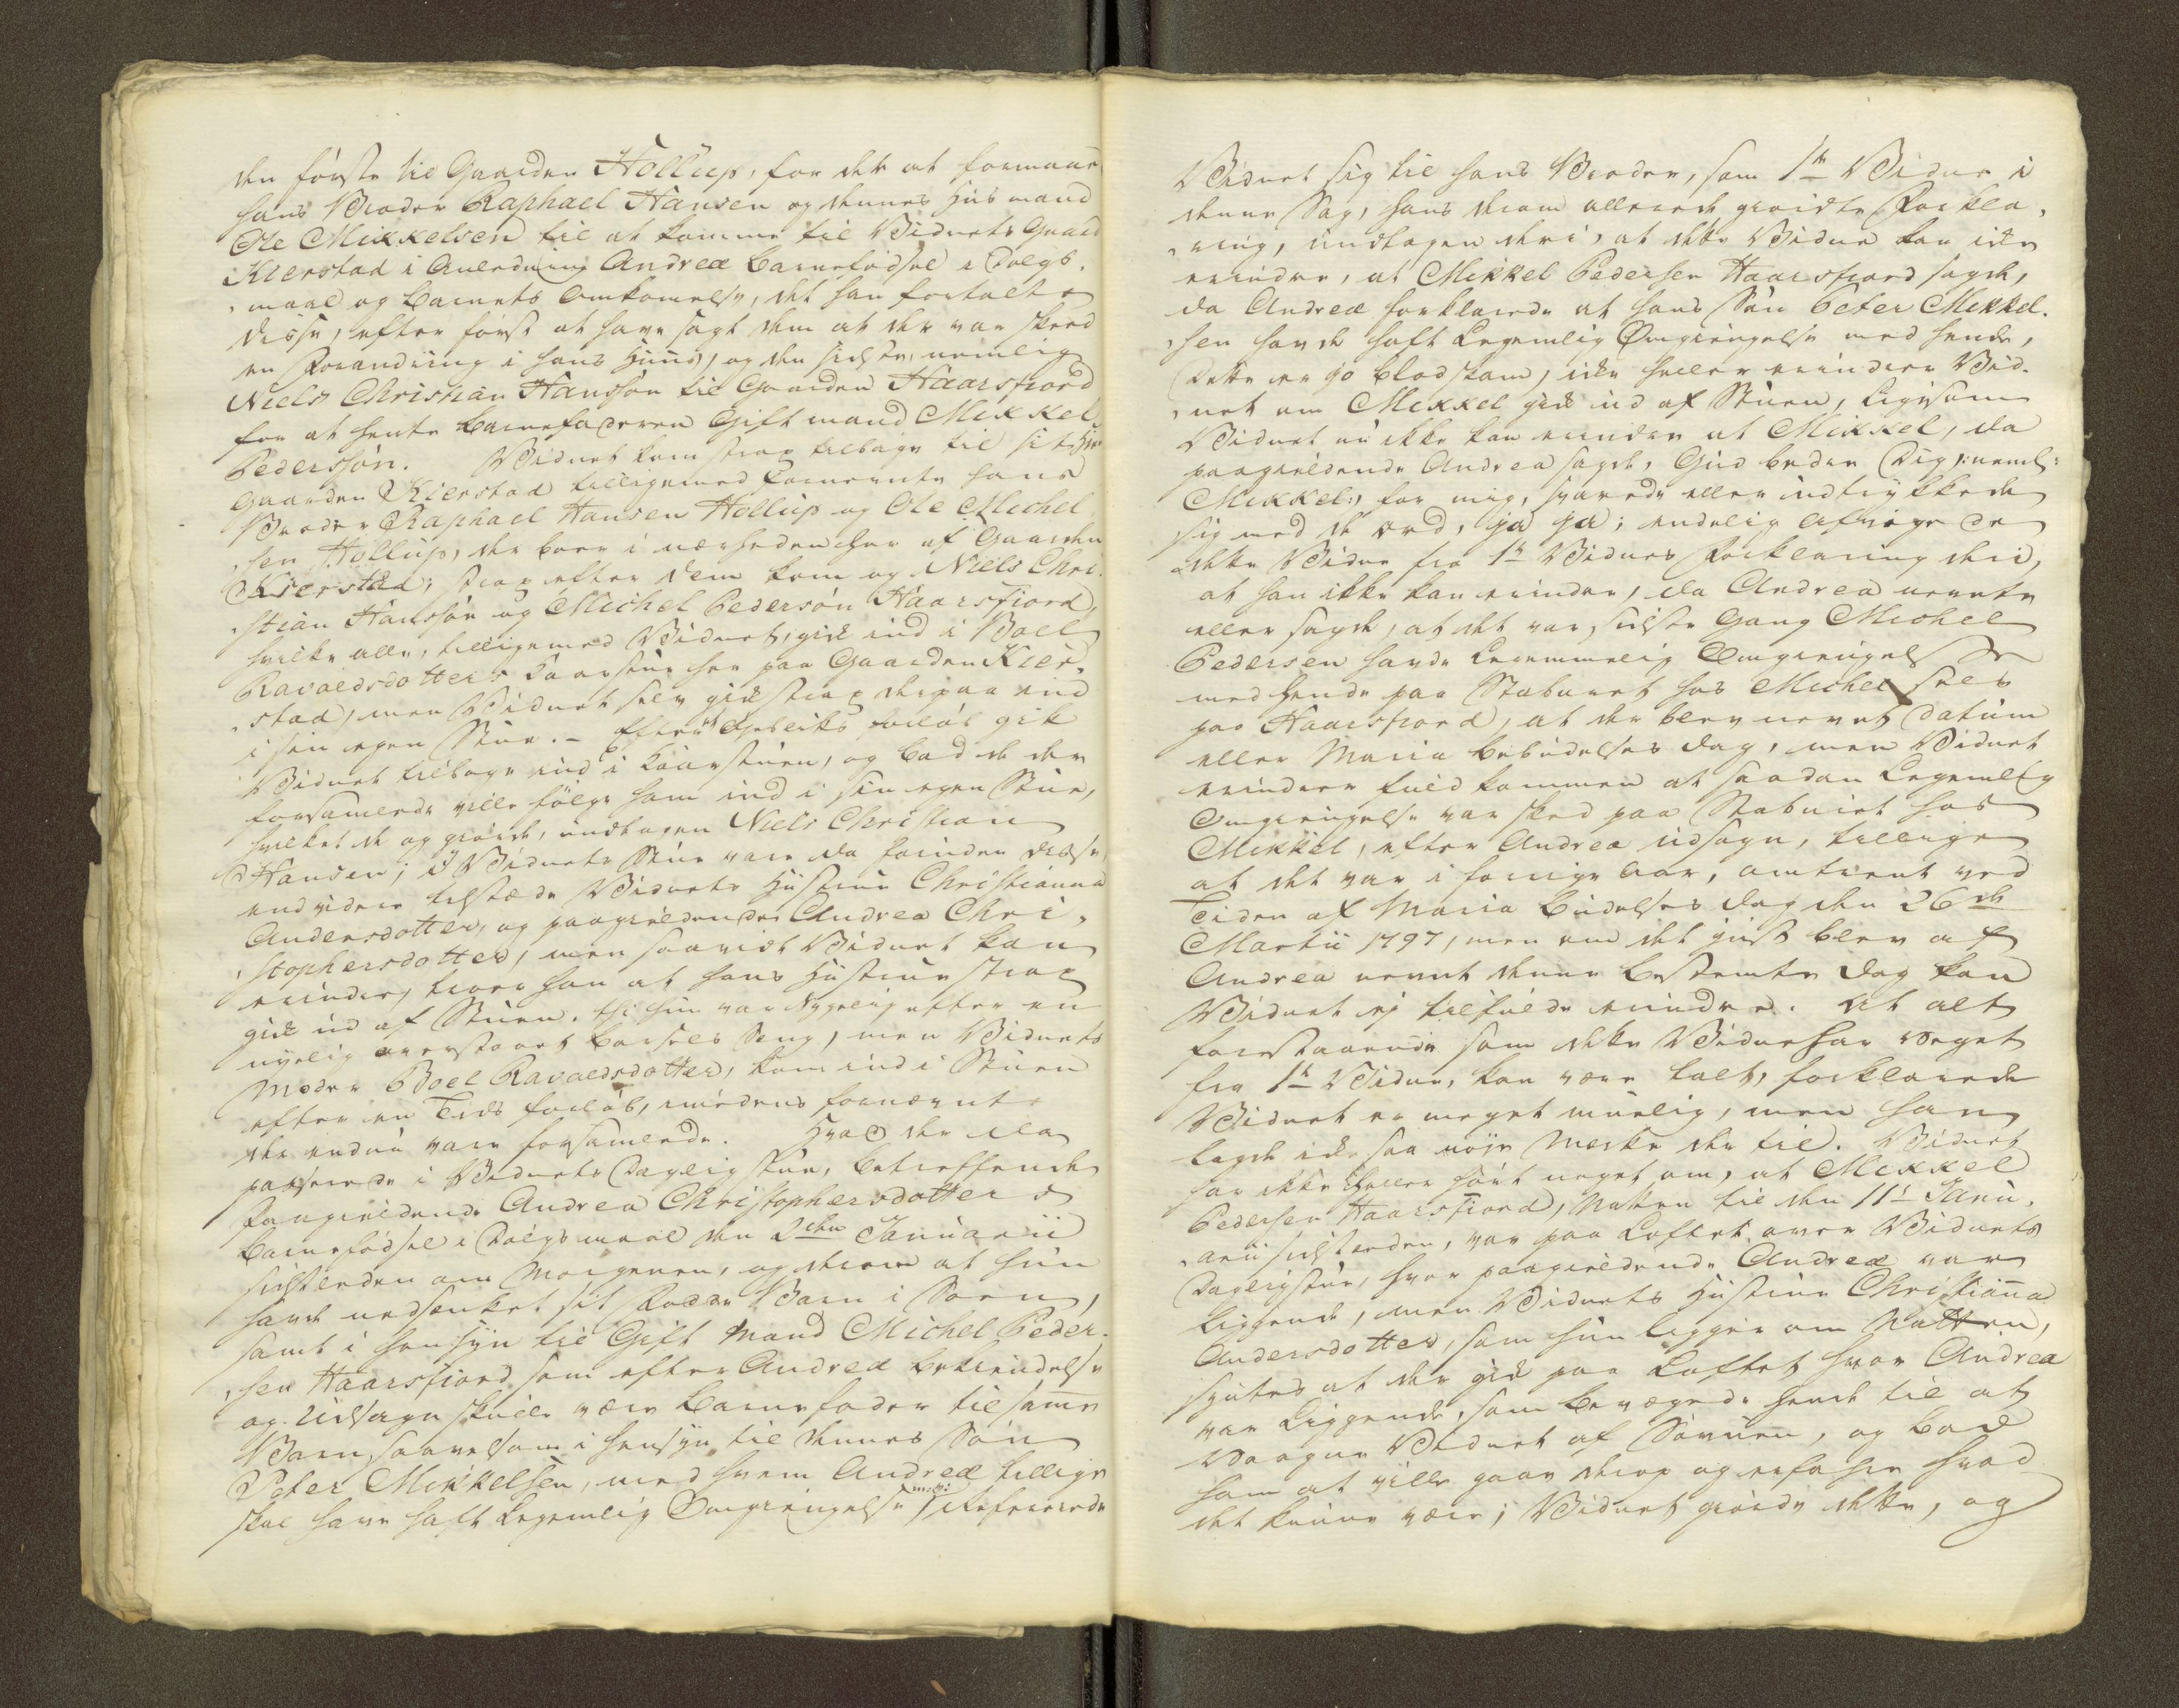 den förste til Gaarden Höllup, for det at formaae
hans Broder Raphael Hansen og dennes Huusmand
Ole Mikkelsen til at komme til Vidnets Gaard
Kierstad i Anledning Andreæ Barnefödsel i Dölgs-
maal og Barnets Omkomelse, det han fortalte
disse, efter först at have sagt dem at der var skeed
en Forandring i hans Huus, og den sidste, nemlig
Niels Christian Hansön til Gaarden Haarsfiord
for at hente Barnefaderen Gift mand Mikkel
Pedersön. Vidnet kom strax tilbage til sit Hiem
Gaarden Kierstad tilligemed fornevnte hans
Broder Raphael Hansen Höllup og Ole Michel-
sen Höllup, der boer i nærheden her af Gaarden
Kierstad; strax efter dem kom og Niels Chri-
stian Hansön og Michel Pedersön Haarsfiord,
hvilke alle, tilligemed Vidnet, gik ind i Boel
Ravaldsdotters Kaarstue her paa Gaarden Kier-
stad, men Vidnet selv gik strax derpaa ind
i sin egen Stue. - Efter Öyebliks forlöb gik
Vidnet tilbage ind i Kaarstuen, og bad de der
forsamlede ville fölge ham ind i sin egen Stue,
hvilket de og giorde, undtagen Niels Christian
Hansen; I Vidnets Stue vare da foruden disse,
endvidere tilstæde Vidnets Hustrue Christianna
Andersdotter, og paagieldende Andrea Chri-
stophersdotter, men saavidt Vidnet kan
erindre, troer han at hans Hustrue strax
gik ud af Stuen, thi hun var Sygelig efter en
nyelig overstaaet Barsels Seng, men Vidnets
Moder Boel Ravaldsdotter, kom ind i Stuen
efter en Tids forlöb, imedens fornævnte
der endnu vare forsamlede. Hvad der da
passerede i Vidnets Dagligstue, betreffende
Paagieldende Andrea Christophersdotters
Barnefödsel i Dölgsmaal den 2den Januarii
sidstleden om Morgenen, og derom at hun
havde nedsænket sit födde Barn i Söen,
samt i Hensyn til Gift Mand Michel Peder-
sen Haarsfiord som efter Andreæ bekiendelse
og Udsagn skulle være Barnefader til samme
Barn, saavelsom i hensyn til dennes Sön
Peter Mikkelsen, med hvem Andrea tillige
skal have haft Legemlig Omgiengelse m:v: refererede
Vidnet sig til hans Broder, som 1te Vidne i
denne Sag, hans derom allerede giorte Forkla-
ring, undtagen deri, at dette Vidne kan ikke
erindre, at Mikkel Pedersen Haarsfiord sagde,
da Andrea forklarede at hans Sön Peter Mikkel-
sen havde haft Legemlig Omgiengelse med hende,
dette er jo Blodskam, ikke heller erindrer Vid-
net om Mikkel gik ud af Stuen, ligesom
Vidnet nu ikke kan erindre at Mikkel, da
paagieldende Andrea sagde, Gud bedre Dig /: nemlig:
Mikkel :/ for mig, svarede eller indtrykkede
sig med de ord, ja ja; endelig afviger da
dette Vidne fra 1te Vidnes Forklaring deri,
at han ikke kan erindre, da Andrea nevnte
eller sagde, at det var sidste Gang Michel
Pedersen havde Legemmelig Omgiengelse
med hende paa Staburet hos Michel selv
paa Haarsfiord, at der blev nevnt Datum
eller Maria bebudelses dag, men Vidnet
erindrer fuldkommen at saadan Legemlig
Omgiengelse var sked paa Staburet hos
Mikkel, efter Andrea udsagn, tillige
at det var i forrige Aar, omtrent ved
Tiden af Maria Budelses dag den 26de
Martii 1797, men om det just blev af
Andrea nevnt denne bestemte Dag kan
Vidnet ej tilfulde erindre. At alt
forestaaende som dette Vidne har veget
fra 1te Vidne, kan være talt, forklarede
Vidnet er meget muelig, men han
lagde ikke saa nöye Merke der til. Vidnet
har ikke heller hört noget om, at Mikkel
Pedersen Haarsfiord, Natten til den 11te Janu-
arii sidstleden, var paa Loftet over Vidnets
Dagligstue, hvor paagieldende Andrea var
liggende, men Vidnets Hustrue Christianna
Andersdotter, som hun ligger om Natten,
syntes at der gik paa Loftet hvor Andrea
var Liggende, som bevægede hende til at
Vaagne Vidnet af Sövnen, og bad
ham at ville gaae derop og erfare hvad
det kunne være; Vidnet giorde dette, og